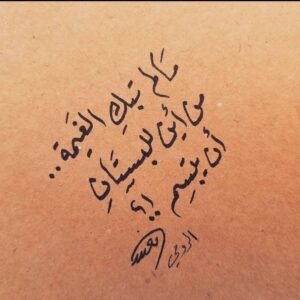 مَالم تبكِ الغيمة..
من أين للبستانِ
أن يبتسِم !؟
الرومي